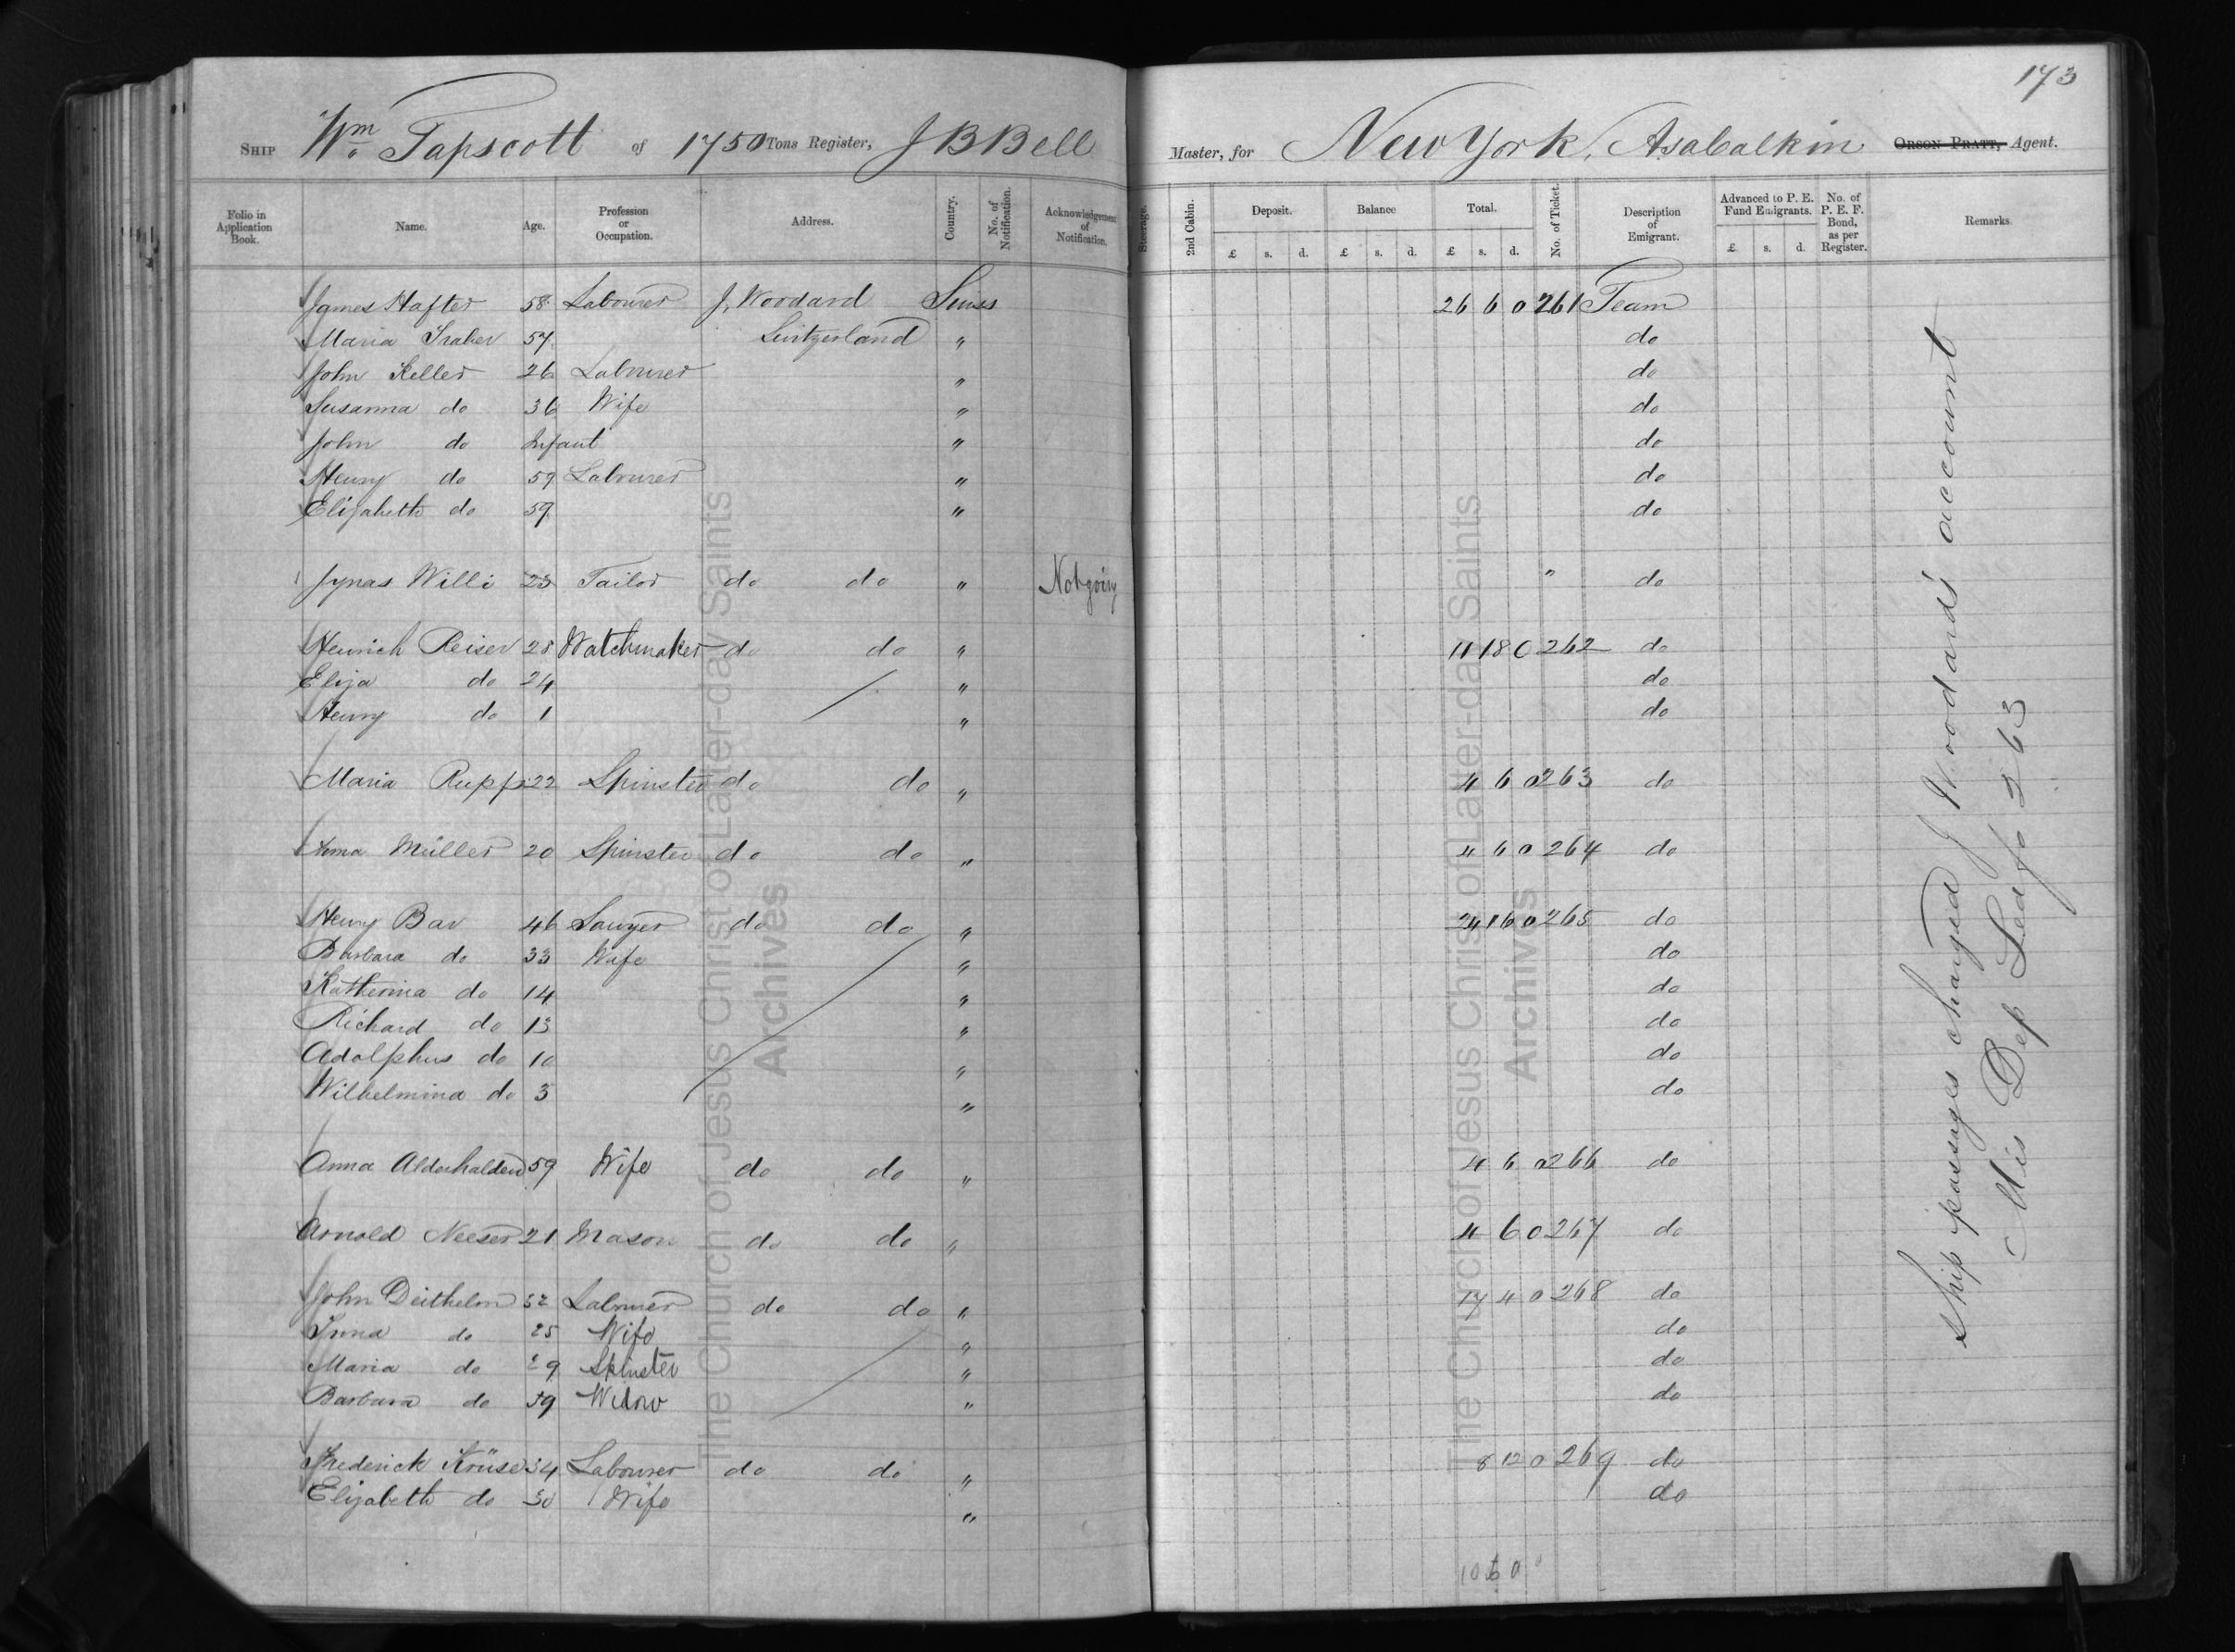 173
SHIP Wm Tapscott of 1750 Tons Register, J B Bell Master, for New York, Asa Calkin ORSON PRATT, Agent.
Folio in Application Book. Name. Age. Profession or Occupation. Address. Country. No. of Notification. Acknowledgement of Notification. Steerage. 2nd Cabin. Deposit. Balance Total. No. of Ticket. Description of Emigrant. Advanced to P. E. Fund Emigrants. No. of P. E. F. Bond, as per Register. Remarks.
£ s. d. £ s. d. £ s. d. £ s. d.
James Hafter 58 Labourer J, Woodard Swiss 26 6 0 261 Team
Maria Graher 57 Switzerland " do
John Keller 26 Labourer " do
Susanna do 36 Wife " do
John do Infant " do
Henry do 59 Labourer " do
Elizabeth do 59 " do
Jynas Willi 23 Tailor do do " Not going " do
Heinrich Reiser 28 Watchmaker do do " 11 18 0 262 do
Eliza do 24 " do
Henry do 1 " do
Maria Rupp 22 Spinster do do " 4 6 0 263 do
Anna Müller 20 Spinster do do " 4 6 0 264 do
Henry Bar 46 Sawyer do do " 24 16 0 265 do
Barbara do 33 Wife " do
Katherina do 14 " do
Richard do 13 " do
Adolphus do 10 " do
Wilhelmina do 3 " do
Anna Alderhalden 59 Wife do do " 4 6 0 266 do
Arnold Neeser 21 Mason do do " 4 6 0 267 do
John Deithelm 32 Labourer do do " 17 4 0 268 do
Anna do 25 Wife " do
Maria do 29 Spinster " do
Barbara do 59 Widow " do
Frederick Krüse 34 Labourer do do " 8 12 0 269 do
Elizabeth do 30 Wife " do
106 0
Ship passages charged J Woodards account
Mis Dep Led fo 263
The Church of Jesus Christ of Latter-day Saints
Archives
The Church of Jesus Christ of Latter-day Saints
Archives